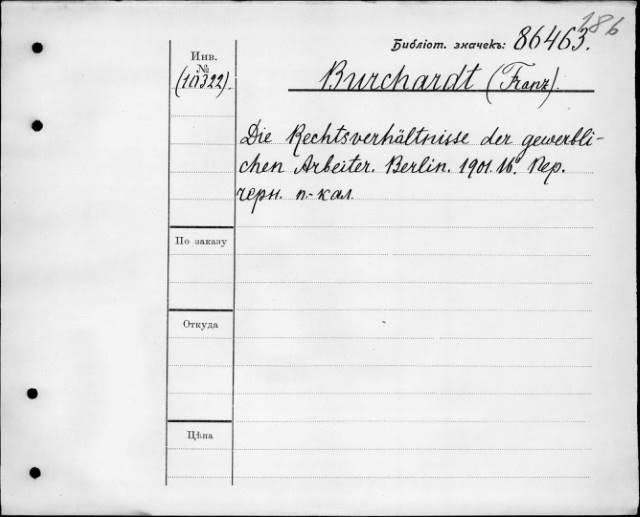 186
Библіот. значекъ: 86463.
Инв.
№
(10322).
Burchardt (Franz).
Die Rechtsverhältnisse der gewerbli-
chen Arbeiter. Berlin. 1901. 16. Пер.
черн. п.-кал.
По заказу
Откуда
Цѣна